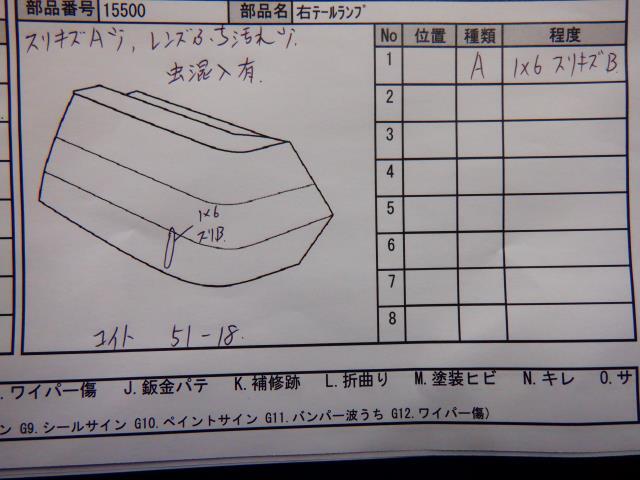 部品番号 15500 部品名 右ﾃｰﾙﾗﾝﾌﾟ
スリキズA少, レンズふち汚れ少.
虫混入有.
No 位置 種類 程度
1 A 1×6 スリキズB.
2
3
4
5
6
7
8
1×6
スリB.
コイト 51-18.
ワイパー傷 J.鈑金パテ K.補修跡 L.折曲り M.塗装ヒビ N.キレ O.サ
ン G9.シールサイン G10.ペイントサイン G11.バンパー波うち G12.ワイパー傷)